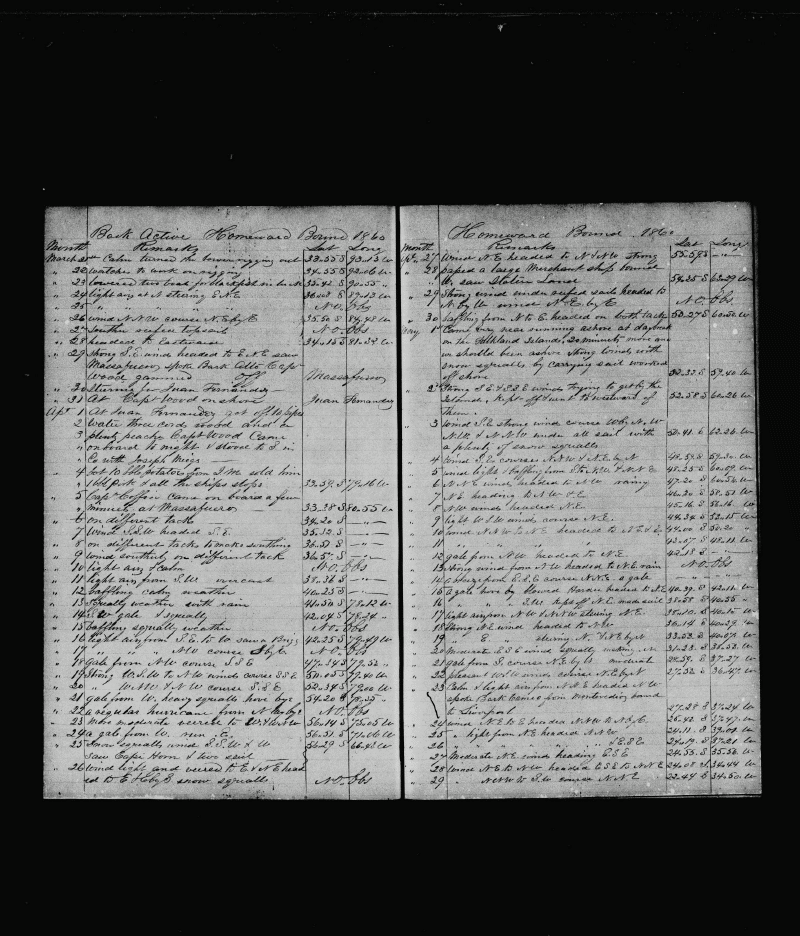 Bark Active Homeward Bound 1860
Month Remarks Lat Long
March 21 Calm turned the lower rigging 33.55 S 93.13 W
" 22 watches to work on rigging 34.55 S 92.06 W
" 23 lowered two boats for blackfish
" 24 light air at N steering E N E
" 25 " " " No Obs
" 26 wind N.N.W course N.E by E 35.50 S 84.48 W
" 27 souther reefed topsail No Obs
" 28 headed to Eastward 34.15 S
" 29 strong S.E wind headed to E.N.E saw
Massafuero spoke Bark Capt
Wood gammed Massafuero
" 30 Steering for Juan Fernandez
" 31 At " Capt Wood on shore Juan Fernandez
Aprl 1 At Juan Fernandez got off
2 water three cords wood and
3 plenty peachs Capt Wood Came
" onboard to night & stove to S in
" Co with Joseph Meigs
" 4 Got 10 bbls potatoes from J.M. sold him
" 1 bbl Pork & all the ships slops 33.39 S 79.16 W
" 5 Capt Coffin came on board a few
" minuets at Massafuero 33.38 S 80.55 W
" 6 on different tacks 34.20 S — " —
" 7 Wind S.S.W headed S.E. 35.32 S — " —
" 8 on different tacks to make southing 36.51 S — " —
" 9 wind southerly on different tack 36.57 S — " —
" 10 light airs & calm No. Obs
" 11 light airs from S.W overcast 38.36 S — " —
" 12 baffling calm weather 40.25 S — " —
" 13 Squally weather with rain 41.50 S 78.12 W
" 14 S.W gale & squally 42.04 S 78.24 "
" 15 baffling squally weather No. Obs
" 16 light air from S.E. to W. saw a Brig 42.25 S 79.49 W
" 17 " " " N.W course S by E No. Obs
" 18 Gale from N.W course S.S E 47.24 S 79.52 "
" 19 Strong W.S.W to N.W winds course S.S E 50.05 S 79.40 W
" 20 " W.N.W & N.W course S.S.E 52.34 S 79.00 W
" 21 gale from W. heavy squalls hove bye 54.20 S 78.55 "
" 22 a regular hurricane from N. No Obs
" 23 More moderate veered to W.S.W & W 56.14 S 75.05 W
" 24 a gale from W. run E. 56.51 S 71.06 W
" 25 Snow squalls wind S.S.W & W 56.29 S 66.42 W
saw Cape Horn & two sail
" 26 Wind light and veered to E & N.E head
ed to E & by S snow squalls No. Obs
Homeward Bound 1860
Month Remarks Lat Long
Aprl 27 Wind N.E headed to N & N.W strong 55.59 S — " —
" 28 passed a large Merchant ship bound
" W. saw Staten Land 54.25 S 63.29 W
" 29 Strong wind under reefed sails headed to
N. by W wind N.E by E No. Obs
" 30 baffling from N to E headed on both tacks 50.27 S 60.50 W
May 1 Came very near running ashore at daybreak
on the Falkland Islands, 20 minuets more and
we should been ashore strong winds with
snow squalls by carrying sail worked
off shore 52.32 S 59.40 W
" 2 Strong S.E & E.S.E winds trying to get by the
Islands, Kept off & went to westward of 52.58 S 60.26 W
them.
" 3 Wind S.E strong wind course W by N, W
N.W. & N.N.W under all sail with
a plenty of snow squalls 50.41 S 62.26 W
" 4 wind S.E. course N.W & N.E by N
" 5 wind light & baffling from S to N.W & N.N E 48.25 S 60.09 W
" 6 N.N.E wind headed to N.W rainy 47.20 S
" 7 N.E heading to N.W & E 46.20 S 58.51 W
" 8 N.W winds headed N.E 45.16 S 56.16 W
" 9 light to S.W wind course N.E. 44.34 S 52.15 W
" 10 wind N.N.W to N.E headed to N.E & E 44.00 S 50.20 "
" 11 " " " 42.07 S 48.11 W
" 12 gale from N.W headed to N.E 42.18 S — " —
" 13 Strong wind from N.W headed to N.E rain No. Obs
" 14 a breeze from E.S.E course N.N.E. a gale — " —
" 15 a gale hove by Howard headed to N.E 40.39 S 42.11 W
" 16 " " " S.W. kept off N.E. made sail 38.58 S 40.55 "
" 17 light air from N.W & N.N.W steering N.E. 38.10 S
" 18 Strong N.E wind headed to N.W 36.14 S 40.29 W
" 19 " E " steering N. & N.E by N 33.53 S 40.07 W
" 20 Moderate E.S E winds squally making N. 31.23 S
" 21 gale from S. course N.E by N moderate 28.59 S 37.27 W
" 22 pleasant W.S.W wind course N.E by N 27.52 S 36.47 W
" 23 Calm & light air from N & E headed N.W
spoke Bark from Montevideo bound
to Liverpool 27.28 S 37.24 W
" 24 wind N.E to E headed N.N.W to N by E. 26.42 S 37.47 W
" 25 " light from N.E headed N.W 24.11 S
" 26 " " " " & E.S.E
" 27 Moderate N.E wind heading E.S.E 24.53 S 35.56 W
" 28 Wind N.E to N.W headed E.S E to N.N E 24.08 S 34.44 W
" 29 " N & N.W to S.W course N.N.E 22.44 S 34.50 W